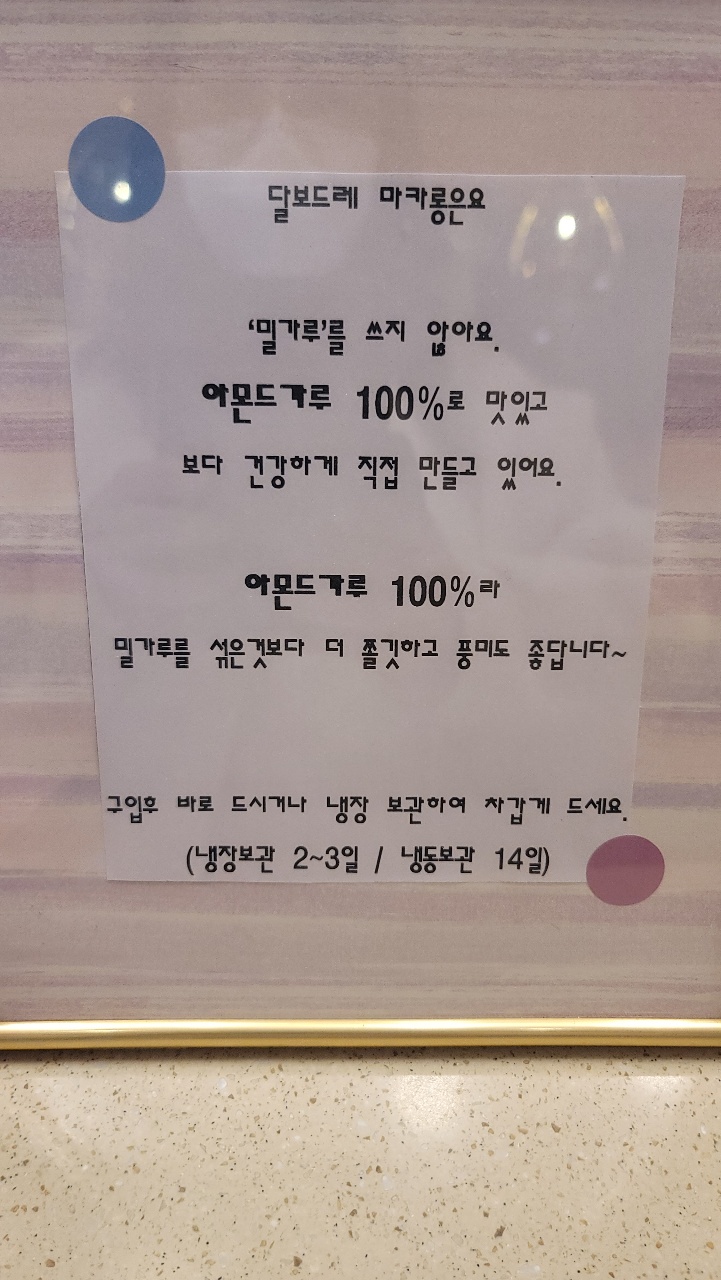 달보드레 마카롱은요
'밀가루'를 쓰지 않아요.
아몬드가루 100%로 맛있고
보다 건강하게 직접 만들고 있어요.
아몬드가루 100%라
밀가루를 섞은것보다 더 쫄깃하고 풍미도 좋답니다~
구입후 바로 드시거나 냉장 보관하여 차갑게 드세요.
(냉장보관 2~3일 / 냉동보관 14일)